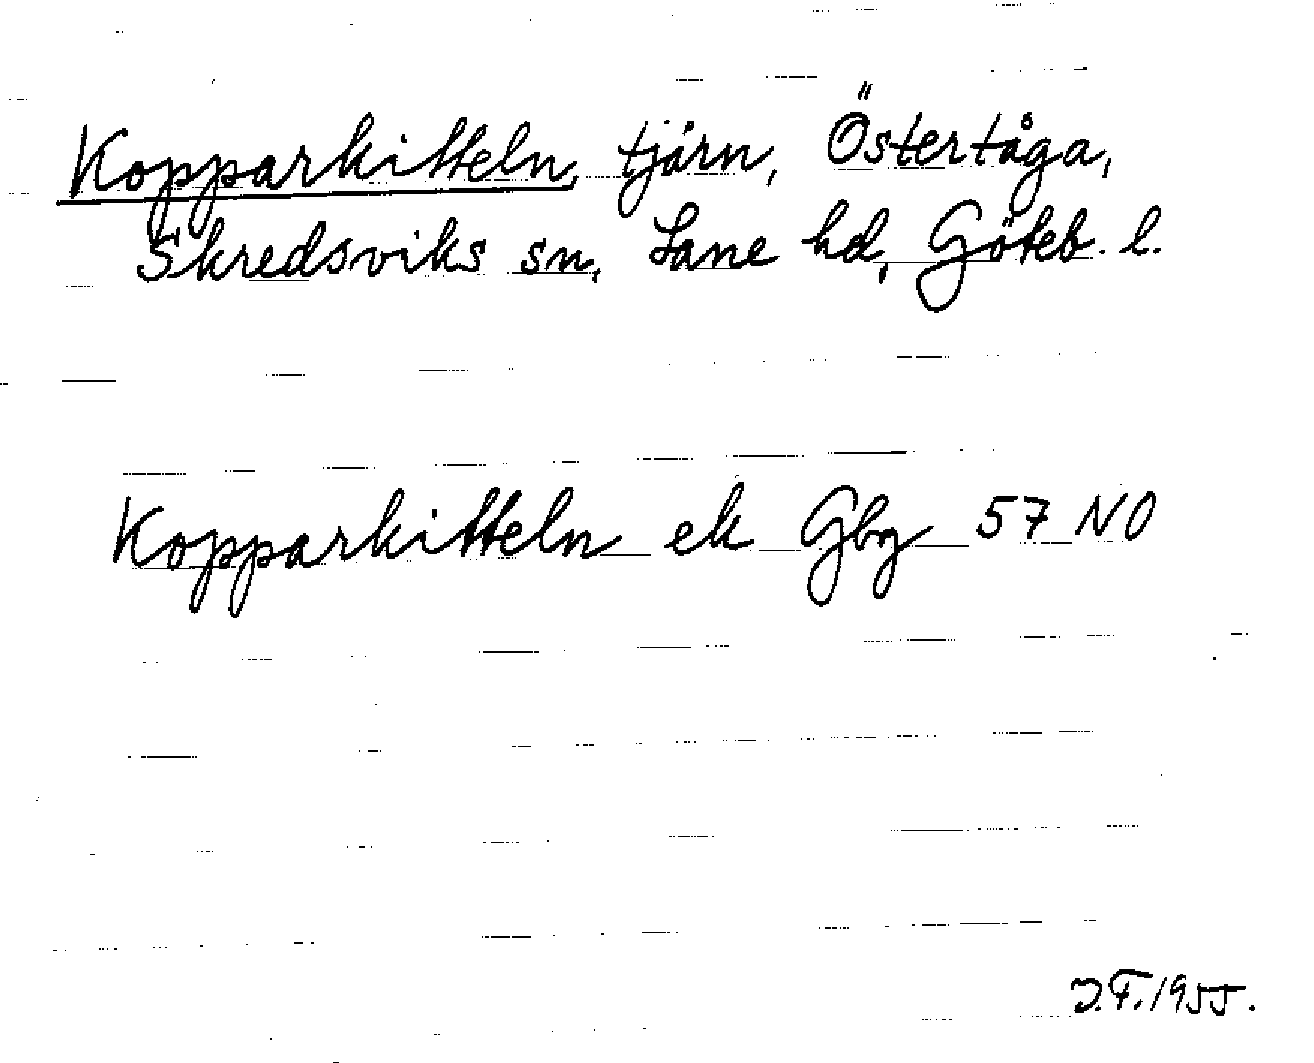 Kopparkitteln, tjärn, Östertåga,
Skredsviks sn, Lane hd, Göteb. l.
Kopparkitteln ek Gbg 57 NO
J.F. 1955.